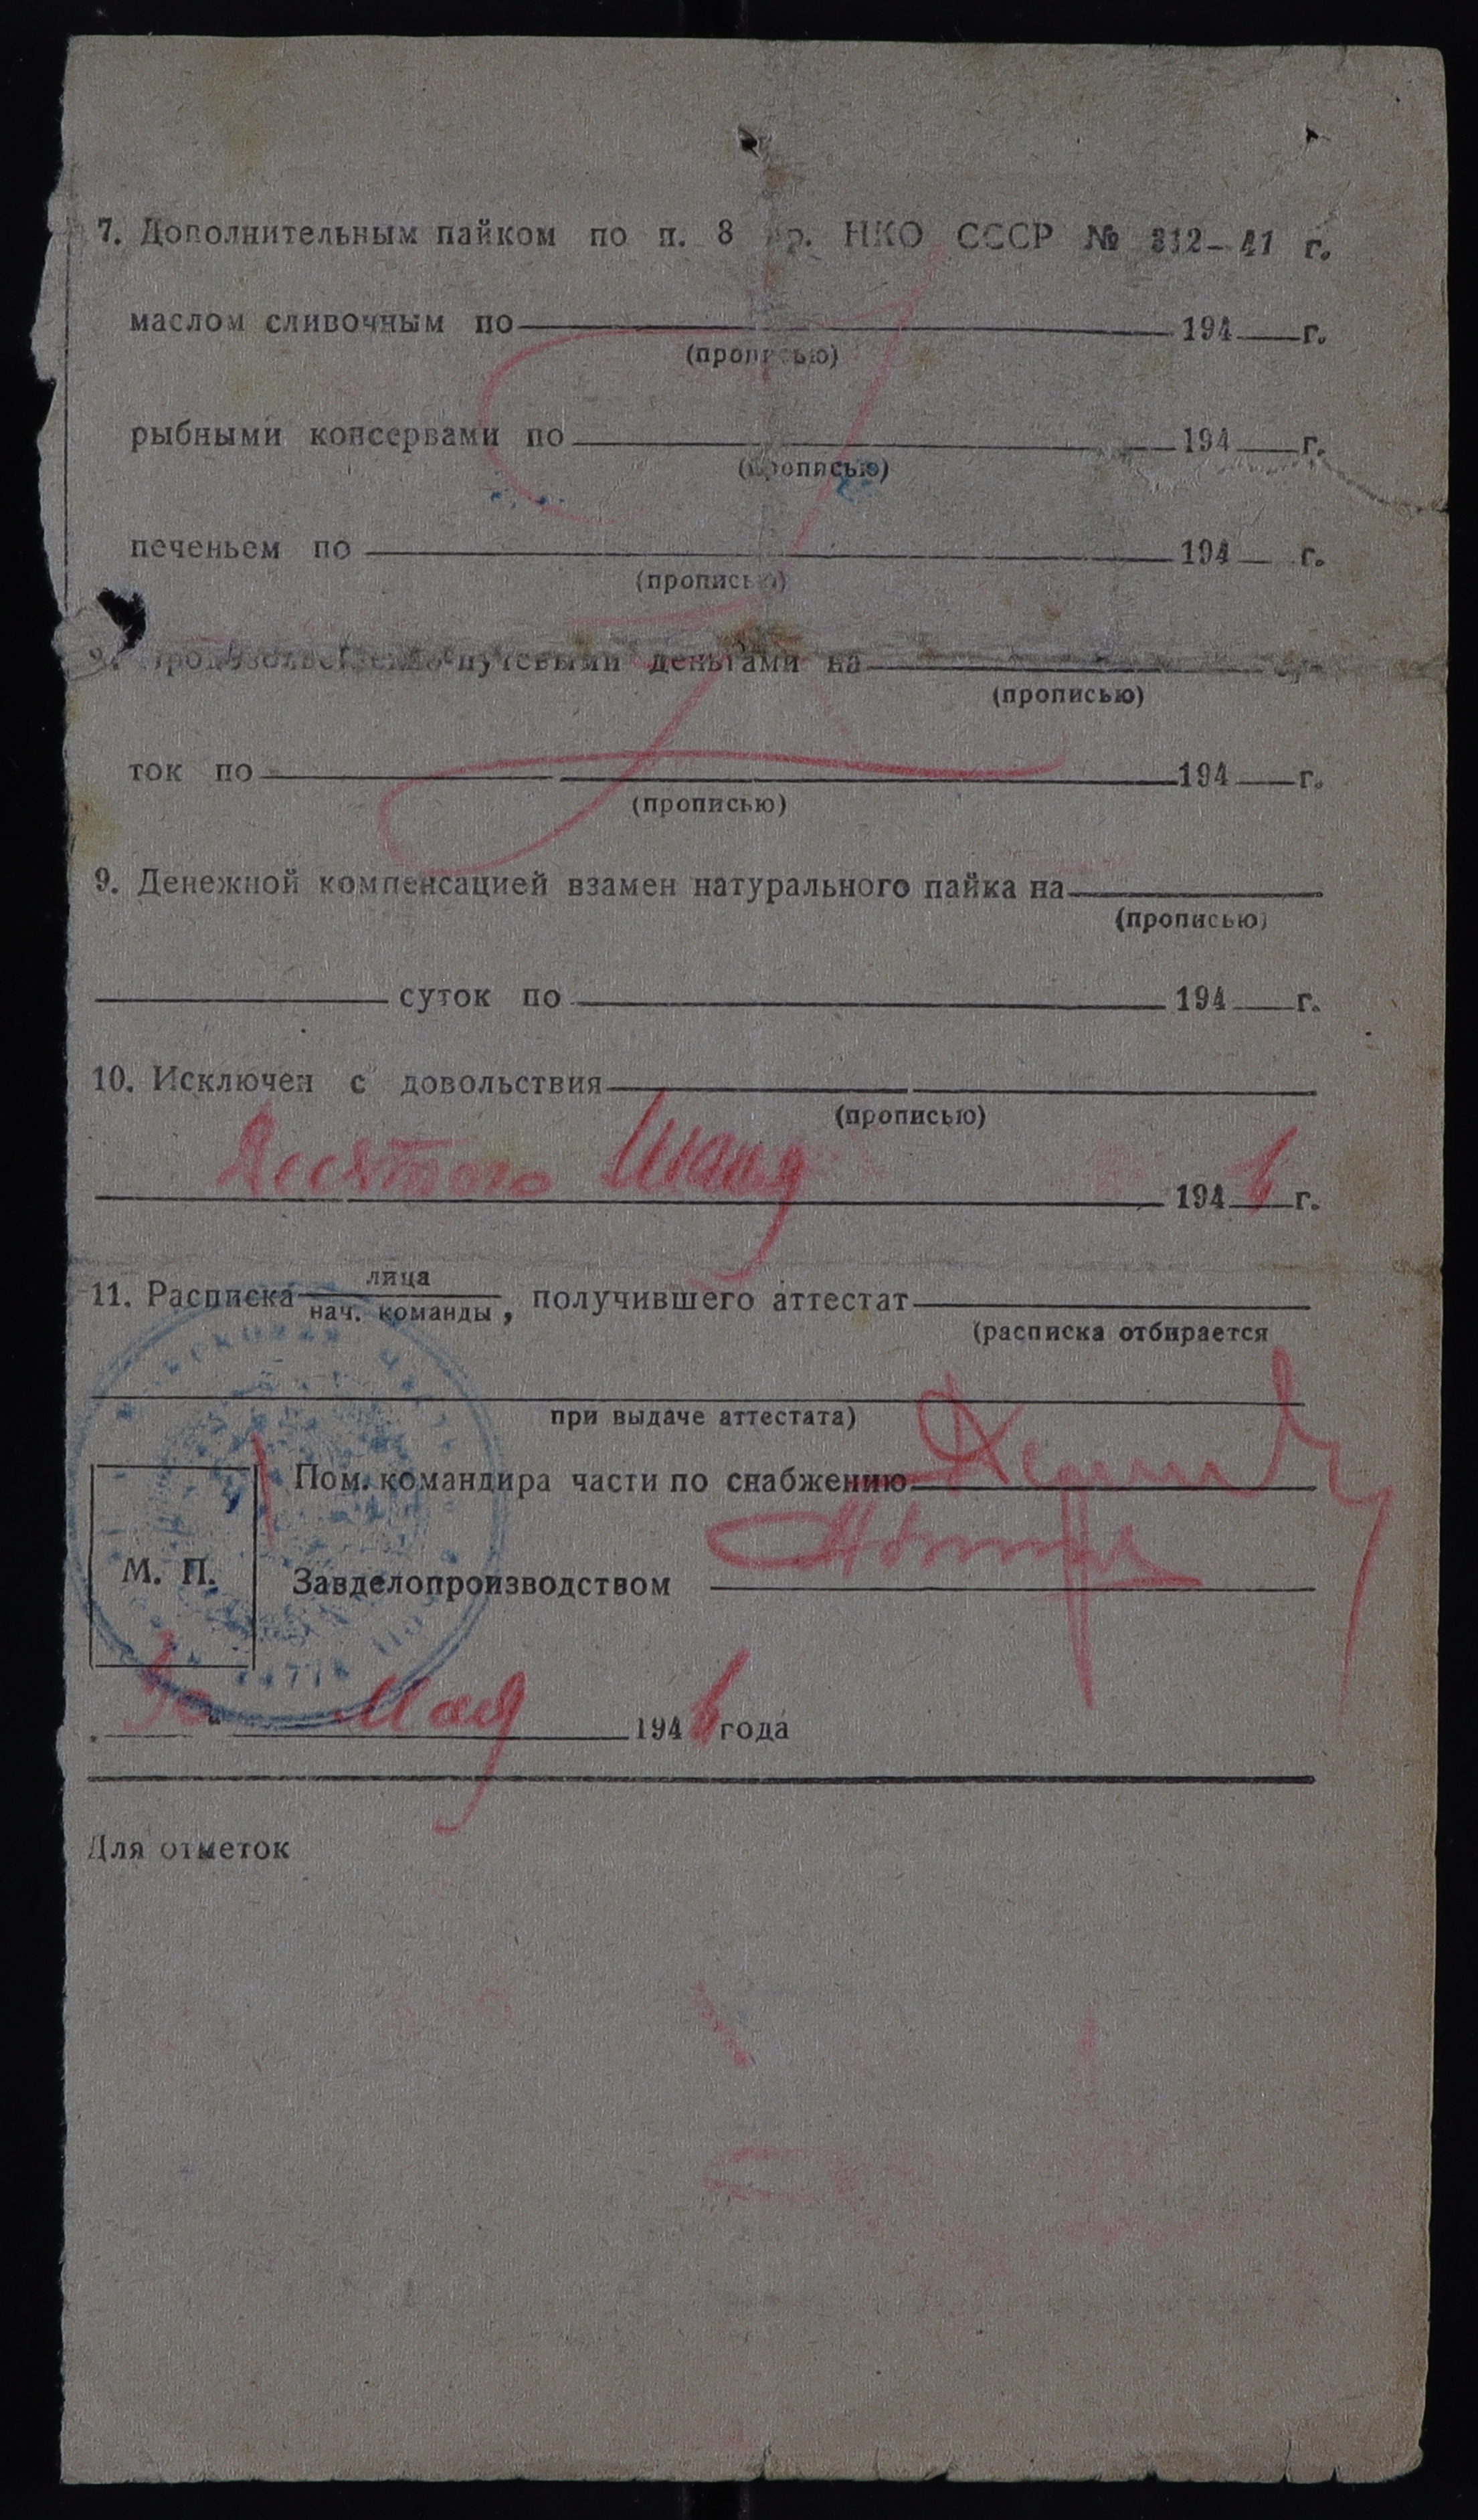 7. Дополнительным пайком по п. 8 пр. НКО СССР № 312-41 г.
маслом сливочным по 194 г.
(прописью)
рыбными консервами по 194 г.
(прописью)
печеньем по 194 г.
(прописью)
путевыми деньгами на
(прописью)
ток по 194 г.
(прописью)
9. Денежной компенсацией взамен натурального пайка на
(прописью)
суток по 194 г.
10. Исключен с довольствия
(прописью)
Десятого 194 6 г.
лица
11. Расписка , получившего аттестат
нач. команды
(расписка отбирается
при выдаче аттестата)
Пом. командира части по снабжению
М. П.
Завделопроизводством
Мая 194 6 года
Для отметок